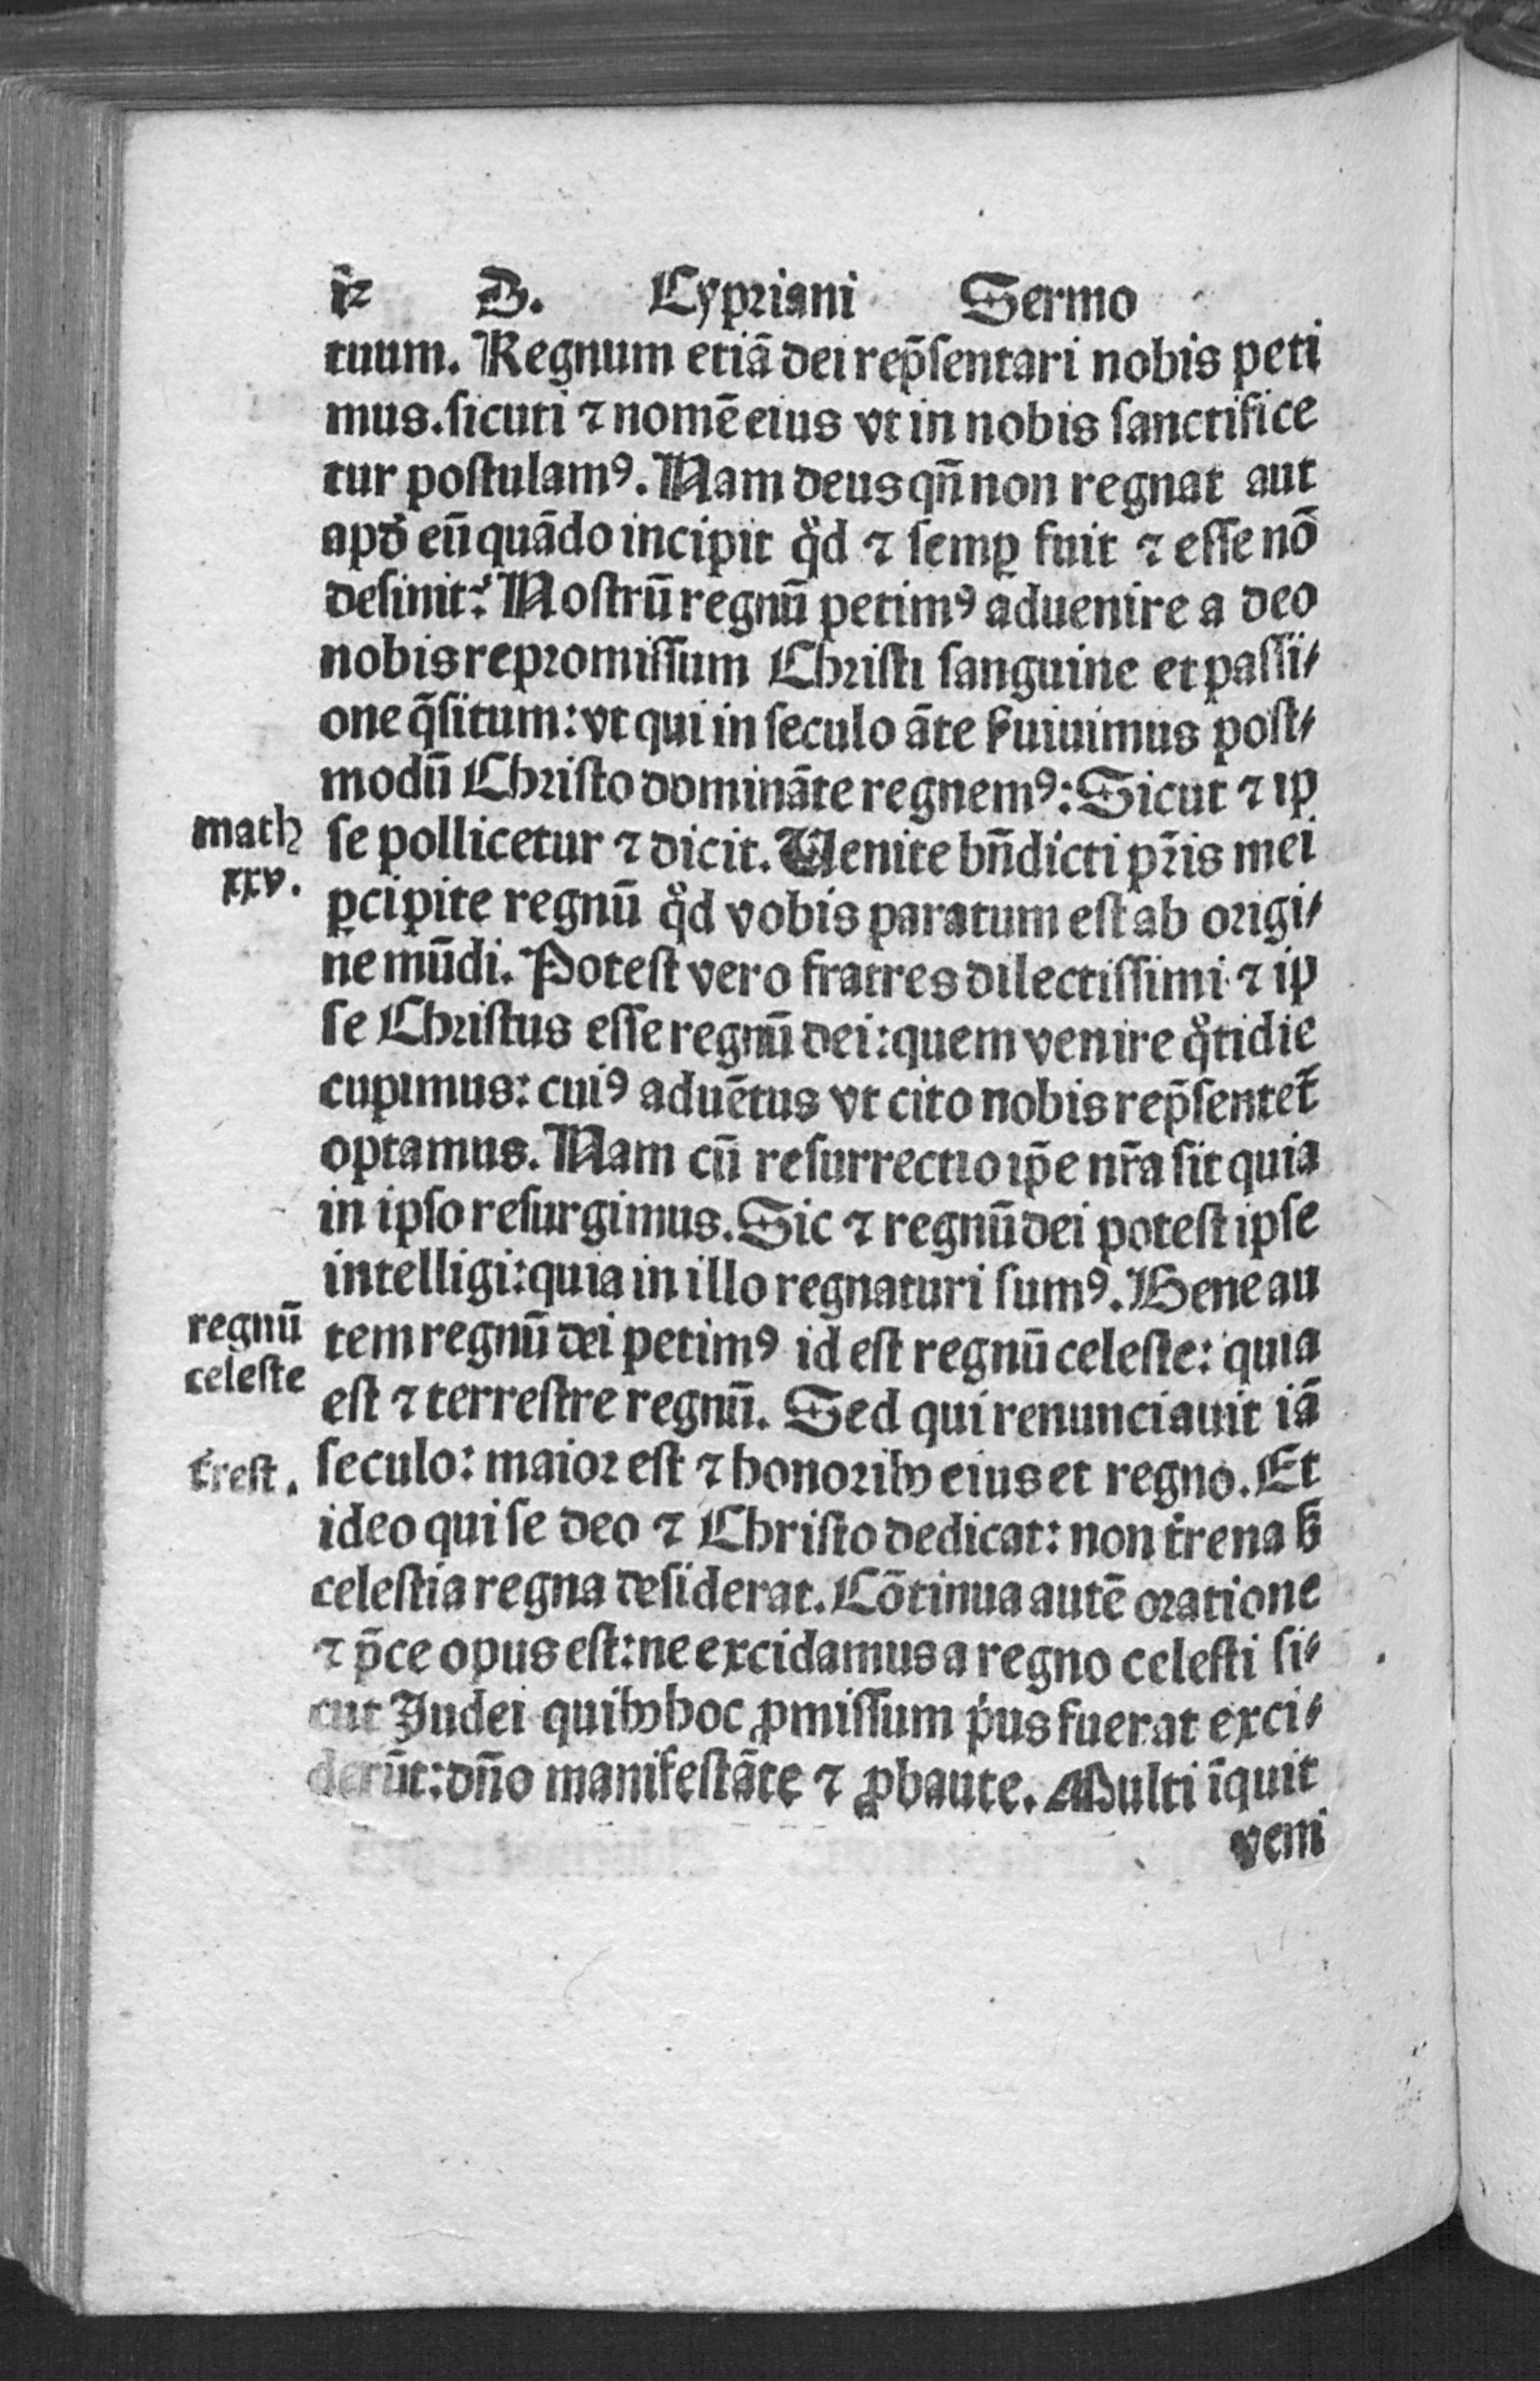 D. Cypriani Sermo
tuum. Regnum etiā dei rep̄ſentari nobis peti
mus. ſicuti ⁊ nomē eius vt in nobis ſanctifice
tur poſtulamꝰ. Nam deus qn̄ non regnat aut
apđ eū quādo incipit qd̊ ⁊ ſemꝑ fuit ⁊ eſſe nō
deſinit? Noſtrū regnū petimꝰ aduenire a deo
nobis repromiſſum Chriſti ſanguine et paſſi⸗
one q̄ſitum: vt qui in ſeculo āte ẜuiuimus poſt⸗
modū Chriſto domināte regnemꝰ: Sicut ⁊ ip
math
xxv.
ſe pollicetur ⁊ dicit. Uenite bn̄dicti pr̄is mei
ꝑcipite regnū qd̊ vobis paratum eſt ab origi⸗
ne mūdi. Poteſt vero fratres dilectiſſimi ⁊ ip
ſe Chriſtus eſſe regnū dei: quem venire qͦtidie
cupimus: cuiꝰ aduētus vt cito nobis rep̄ſentet᷑
optamus. Nam cū reſurrectio ip̄e nr̄a ſit quia
in ipſo reſurgimus. Sic ⁊ regnū dei poteſt ipſe
intelligi: quia in illo regnaturi ſumꝰ. Bene au
regnū
celeſte
tem regnū dei petimꝰ id eſt regnū celeſte: quia
eſt ⁊ terreſtre regnū. Sed qui renunciauit iā
t̄reſt.
ſeculo: maior eſt ⁊ honoribꝰ eius et regno. Et
ideo qui ſe deo ⁊ Chriſto dedicat: non t̄rena ẜ
celeſtia regna deſiderat. Cōtinua autē oratione
⁊ p̄ce opus eſt: ne excidamus a regno celeſti ſi⸗
cut Judei quibꝰ hoc ꝓmiſſum pͥus fuerat exci⸗
derūt: dn̄o manifeſtāte ⁊ ꝓbaute. Multi īquit
veni